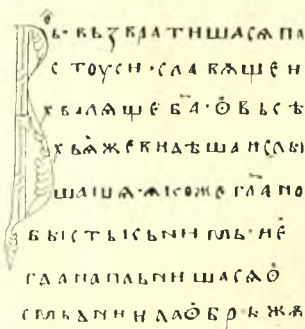 Въ· възвратишасѧ па
стоуси· славѧще и
хвалѧще б҃а· о вьсѣ
хъ ꙗже видѣша и слы
шаша· ꙗкоже гл҃ано
бысть къ нимъ· и е
гда напльнишасѧ о
смь дьнии да обрѣжѫ